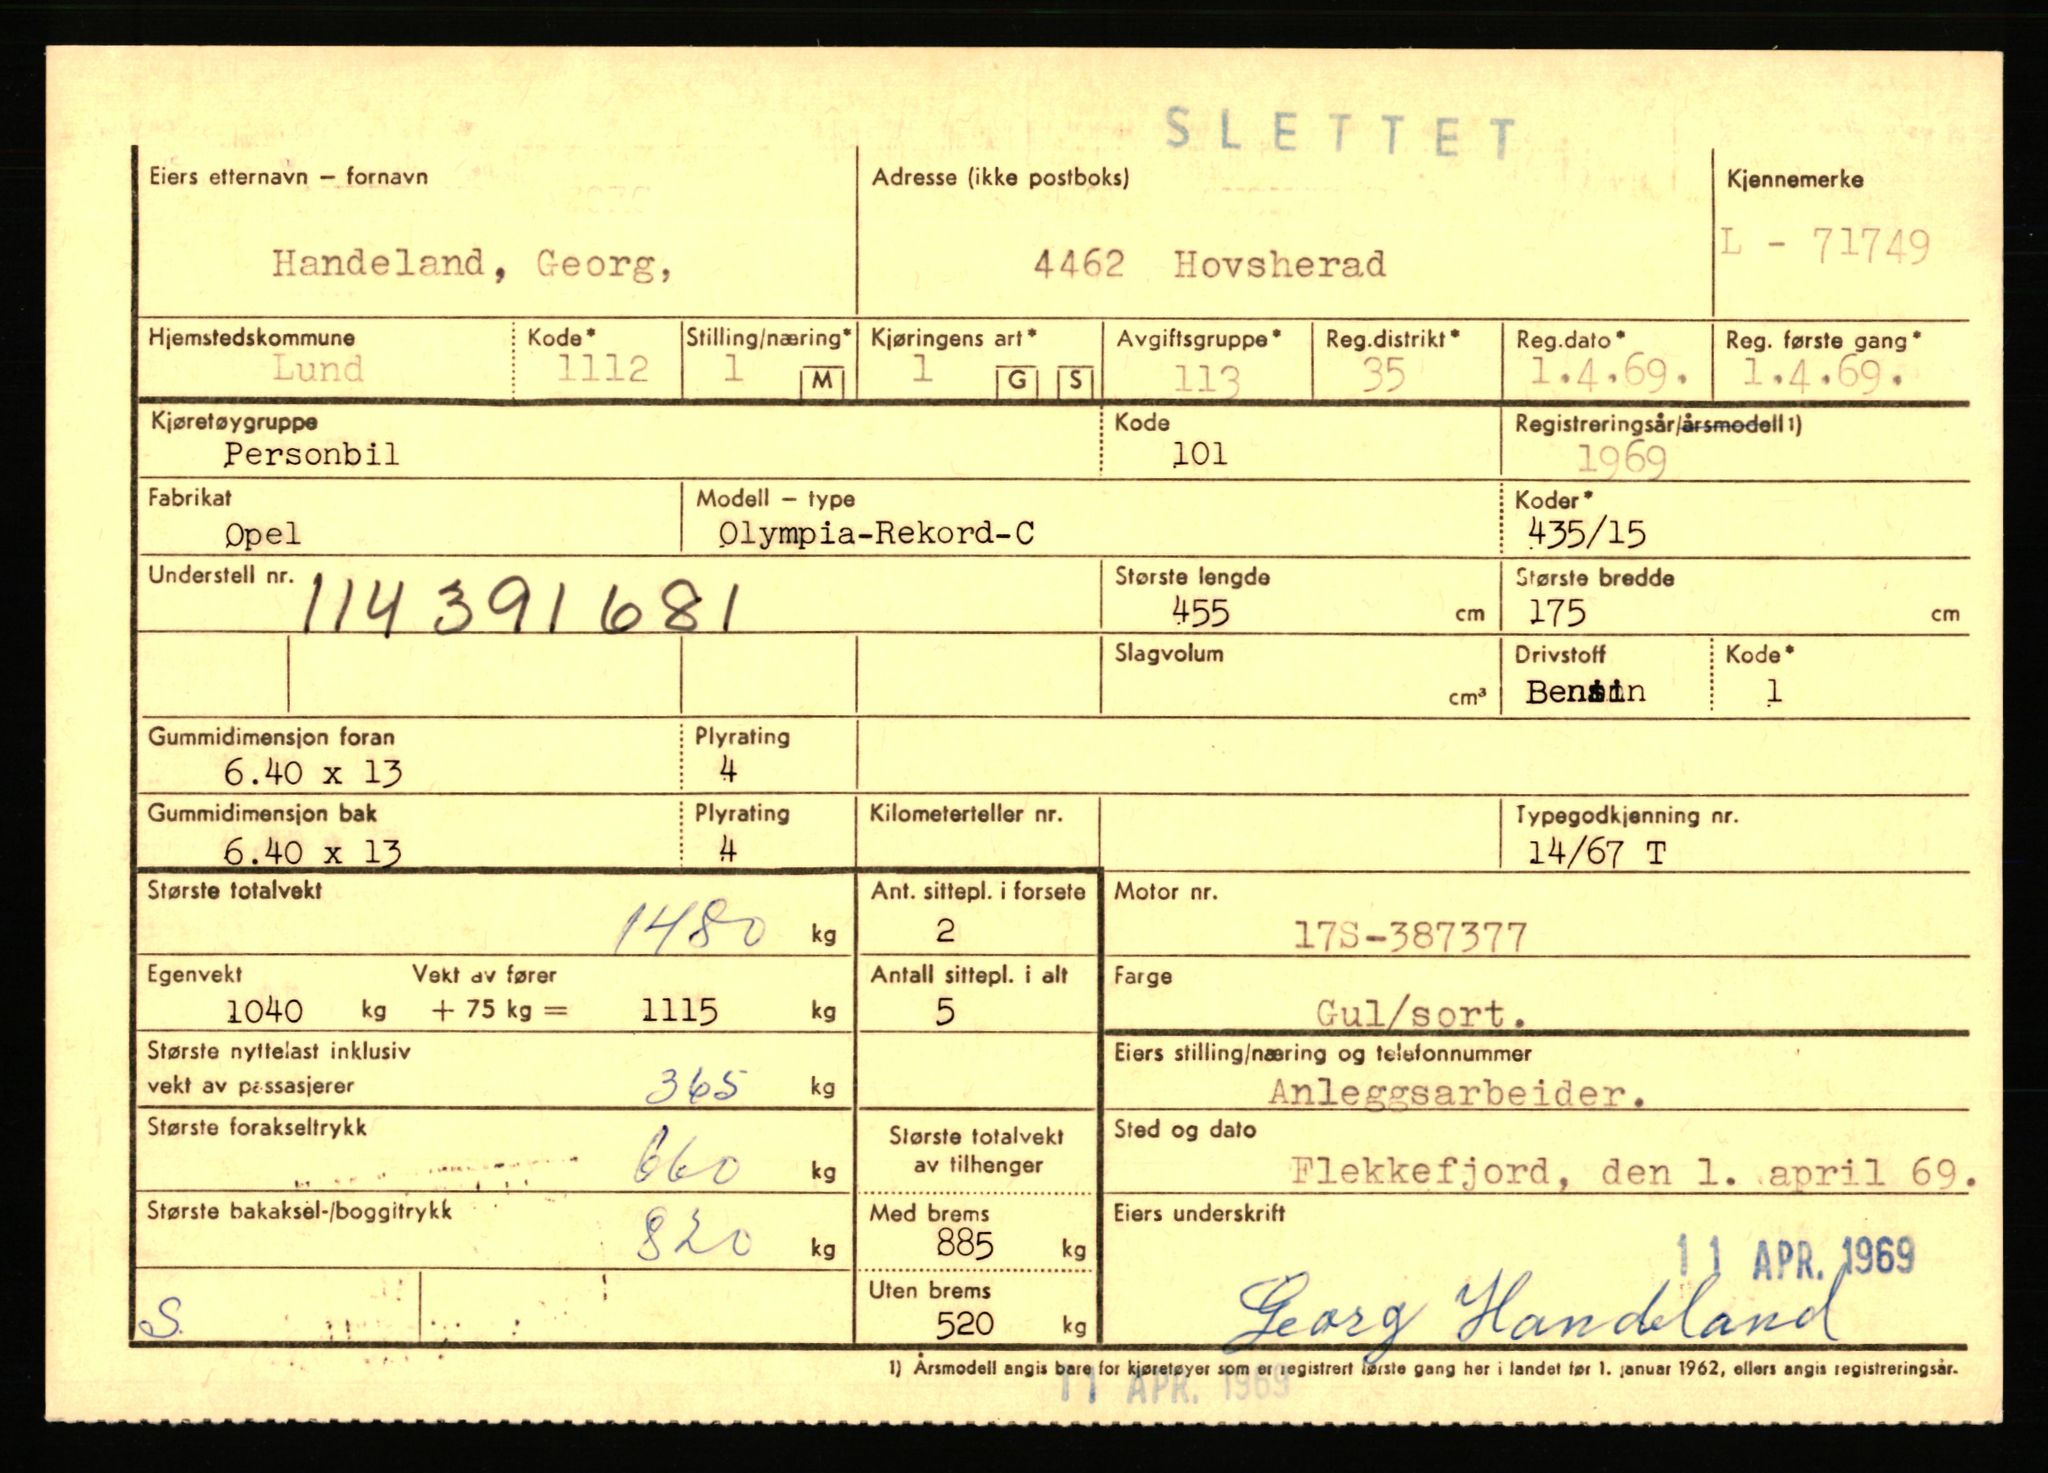 SLETTET
Eiers etternavn – fornavn
Adresse (ikke postboks)
Kjennemerke
Handeland, Georg,
4462 Hovsherad
L - 71749
Hjemstedskommune
Kode*
Stilling/næring*
Kjøringens art*
Avgiftsgruppe*
Reg.distrikt*
Reg.dato*
Reg. første gang*
Lund
1112
1
M
1
G
S
113
35
1.4.69.
1.4.69.
Kjøretøygruppe
Kode
Registreringsår/årsmodell 1)
Personbil
101
1969
Fabrikat
Modell – type
Koder*
Opel
Olympia-Rekord-C
435/15
Understell nr.
114391681
Største lengde
455 cm
Største bredde
175 cm
Slagvolum
cm³
Drivstoff
Bensin
Kode*
1
Gummidimensjon foran
6.40 x 13
Plyrating
4
Gummidimensjon bak
6.40 x 13
Plyrating
4
Kilometerteller nr.
Typegodkjenning nr.
14/67 T
Største totalvekt
1480 kg
Ant. sittepl. i forsete
2
Motor nr.
17S-387377
Egenvekt
Vekt av fører
1040 kg + 75 kg = 1115 kg
Antall sittepl. i alt
5
Farge
Gul/sort.
Største nyttelast inklusiv
vekt av passasjerer
365 kg
Eiers stilling/næring og telefonnummer
Anleggsarbeider.
Største forakseltrykk
660 kg
Største totalvekt
av tilhenger
Sted og dato
Flekkefjord, den 1. april 69.
Største bakaksel-/boggitrykk
820 kg
Med brems
885 kg
Eiers underskrift
11 APR. 1969
Uten brems
520 kg
Georg Handeland
S.
1) Årsmodell angis bare for kjøretøyer som er registrert første gang her i landet før 1. januar 1962, ellers angis registreringsår.
11 APR. 1969